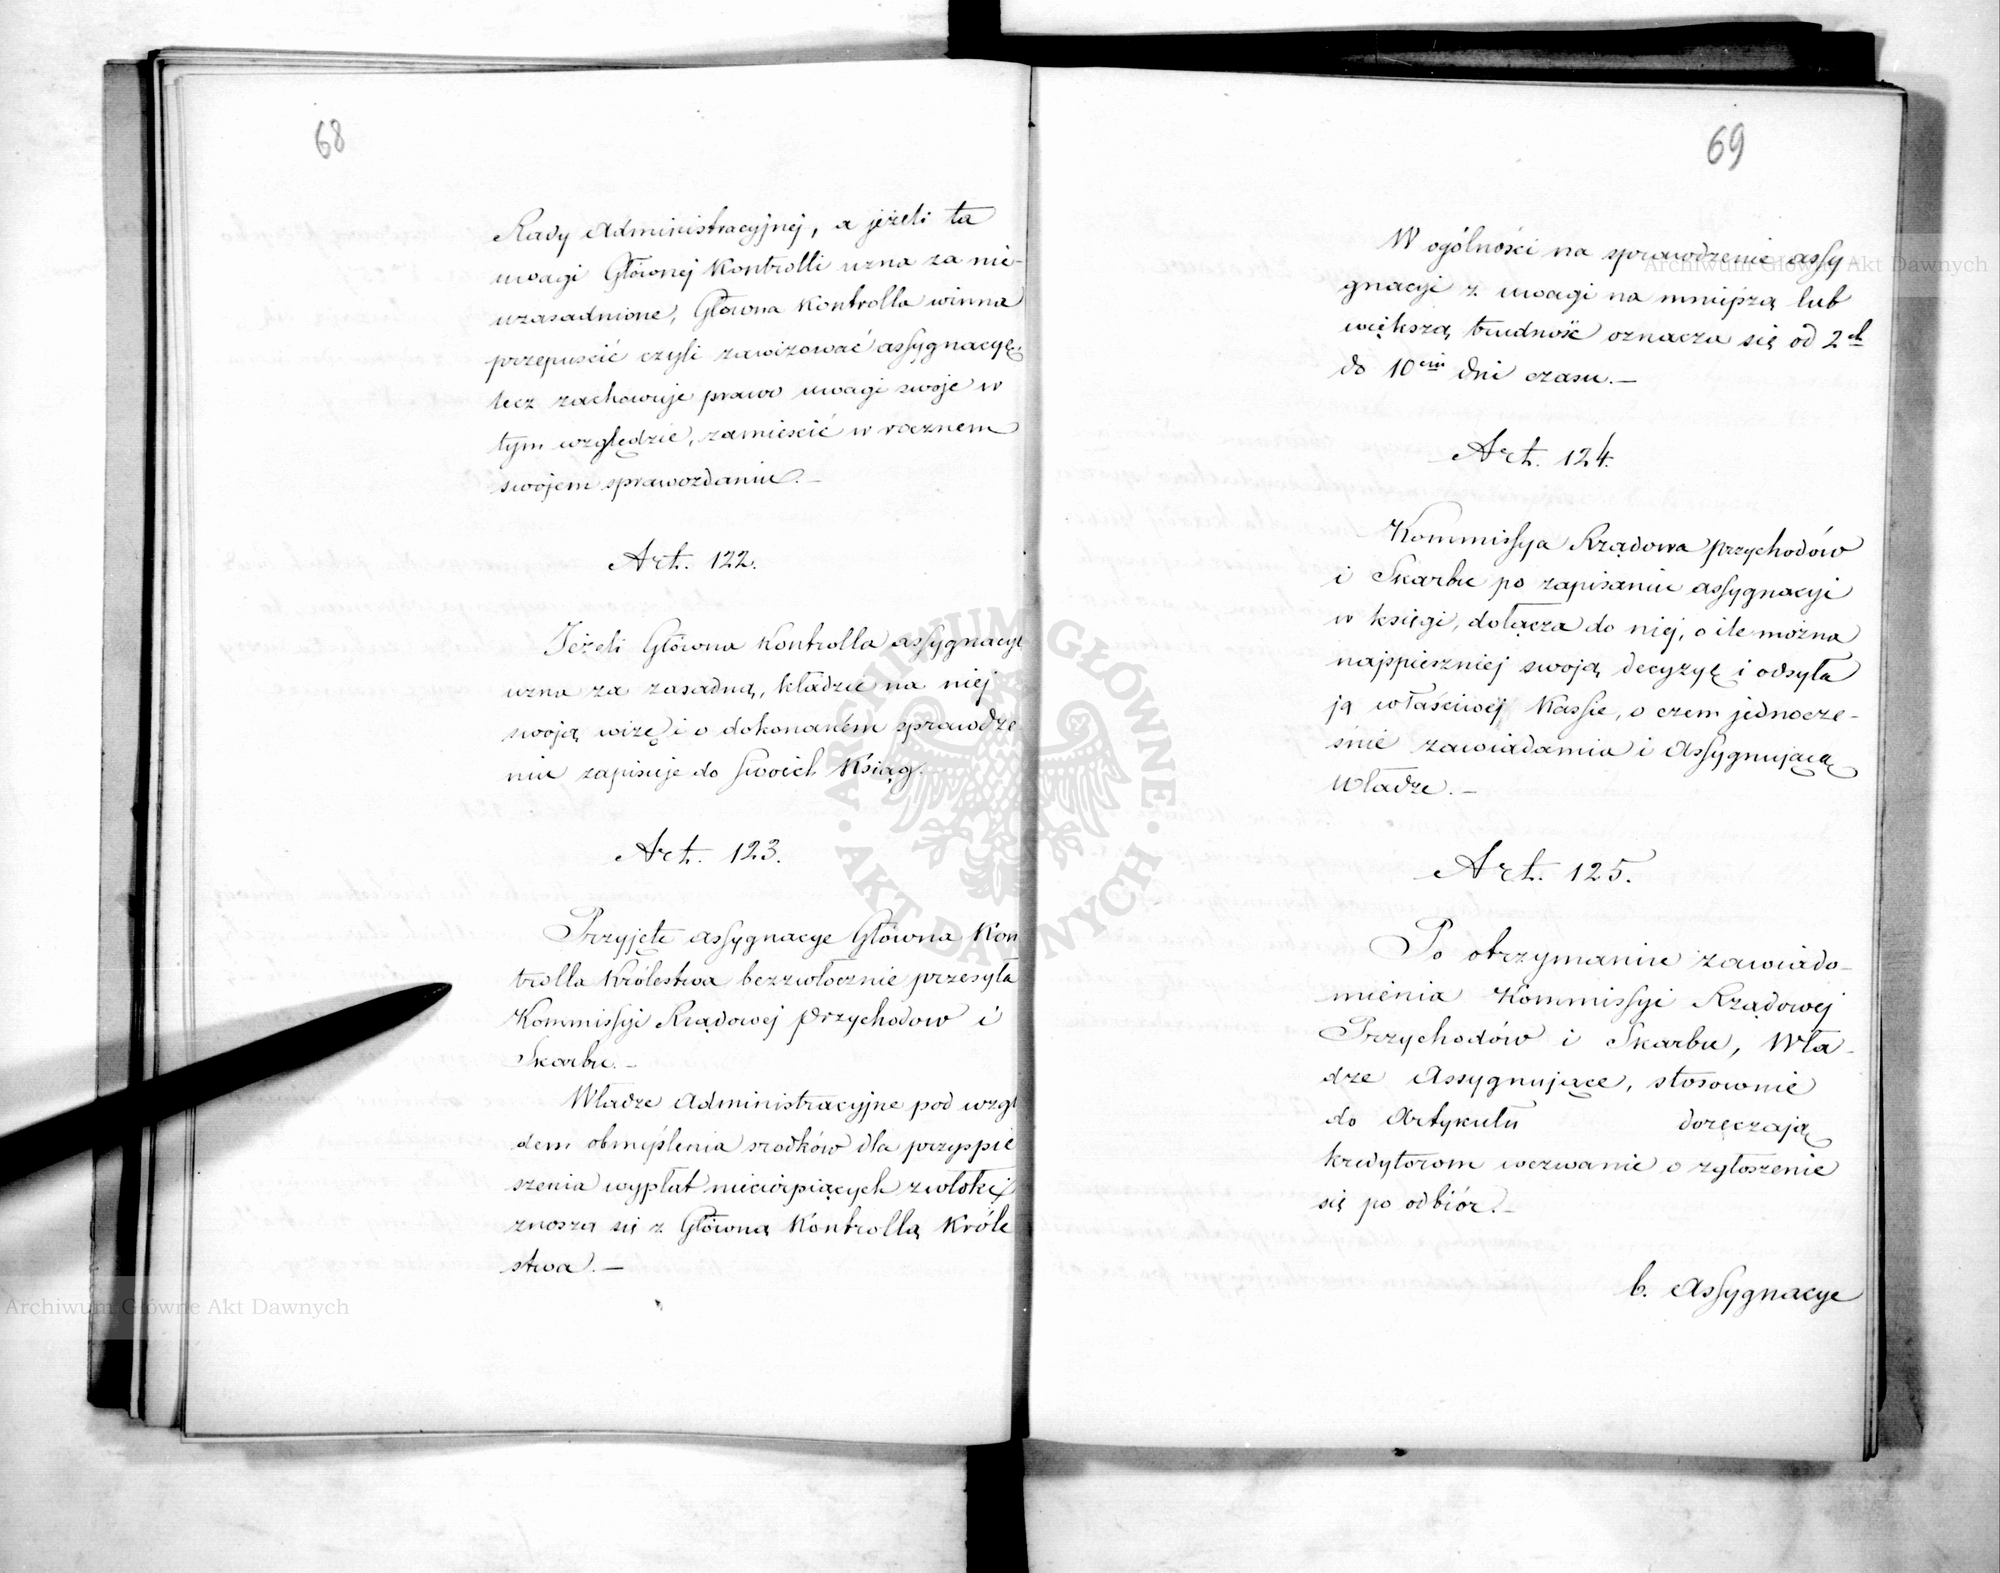 68
Rady Administracyjnej, a jeżeli ta
uwagi Głównej Kontrolli uzna za nie-
uzasadnione, Główna Kontrolla winna
przepuścić czyli zawizować assygnacyę,
lecz zachowuje prawo uwagi swoje w
tym względzie, zamieścić w rocznem
swojem sprawozdaniu. –
Art. 122.
Jeżeli Główna Kontrolla assygnacyę
uzna za zasadną, kładzie na niej
swoją wizę i o dokonaném sprawdze
niu zapisuje do swoich Ksiąg.
Art. 123.
Przyjęte assygnacye Główna Kon
trolla Królestwa bezzwłocznie przesyła
Kommissyi Rządowej Przychodow i
Skarbu. –
Władze Administracyjne pod wzglę
dem obmyślenia srodków dla przyspie
szenia wypłat niecierpiących zwłoki,
znoszą się z Główną Kontrollą Króle
stwa. –
69
W ogólności na sprawdzenie assy
gnacyi z uwagi na mniejszą lub
większą trudność oznacza się od 2ch
do 10ciu dni czasu. –
Art. 124.
Kommissya Rządowa Przychodów
i Skarbu po zapisaniu assygnacyi
w księgi, dołącza do niej, o ile można
najspieszniej swoją decyzyę i odsyła
ją właściwej Kassie, o czem jednocze-
śnie zawiadamia i Assygnującą
Władze. –
Art. 125.
Po otrzymaniu zawiado-
mienia Kommissyi Rządowej
Przychodów i Skarbu, Wła-
dze Assygnujące, stosownie
do Artykułu doręczają
kredytorom wezwanie o zgłoszenie
się po odbiór. –
b. Assygnacye
Archiwum Główne Akt Dawnych
Archiwum Główne Akt Dawnych
ARCHIWUM GŁÓWNE · AKT DAWNYCH ·